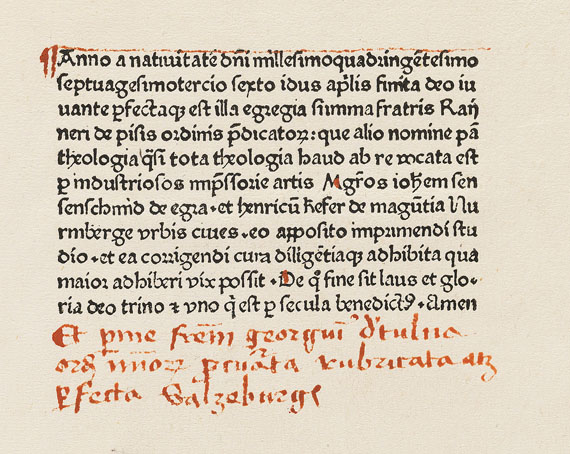 ¶Anno a natiuitate dn̄i millesimoquadringētesimo
septuagesimotercio sexto idus apͥlis finita deo iu
uante ꝑfectaqꝫ est illa egregia summa fratris Rayͫ
neri de pisis ordinis p̄dicatoꝝ: que alio nomine pā
theologia qͣsi tota theologia haud ab re vocata est
ꝑ industriosos imp̄ssorie artis Mgr̄os ioh̄em sen
senschmid de egra · et henricū kefer de magūtia Nu
rmberge vrbis ciues · eo apposito imprimendi stu
dio · et ea corrigendi cura diligētiaqꝫ adhibita qua
maior adhiberi vix possit · De qͦ fine sit laus et glo-
ria deo trino ⁊ vno qͥ est ꝑ secula benedictꝰ · Amen
Et frēm georgiuͫ
ord̄ ꝑ rubricata atqꝫ
ꝑfecta Salzeburge